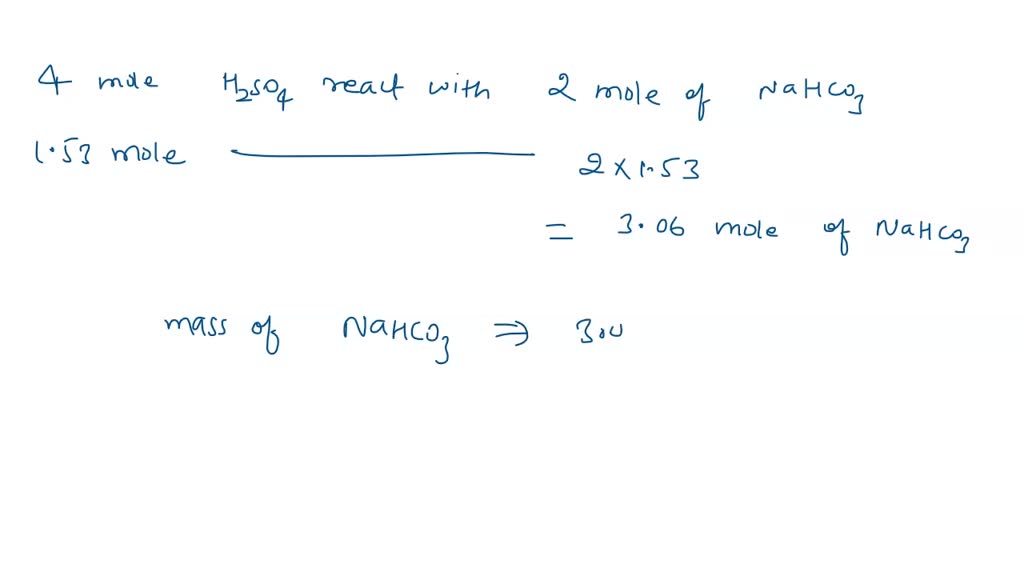 4 mole H₂SO₄ react with 2 mole of NaHCO₃
1.53 mole 2 × 1.53
= 3.06 mole of NaHCO₃
mass of NaHCO₃ ⇒ 3.0